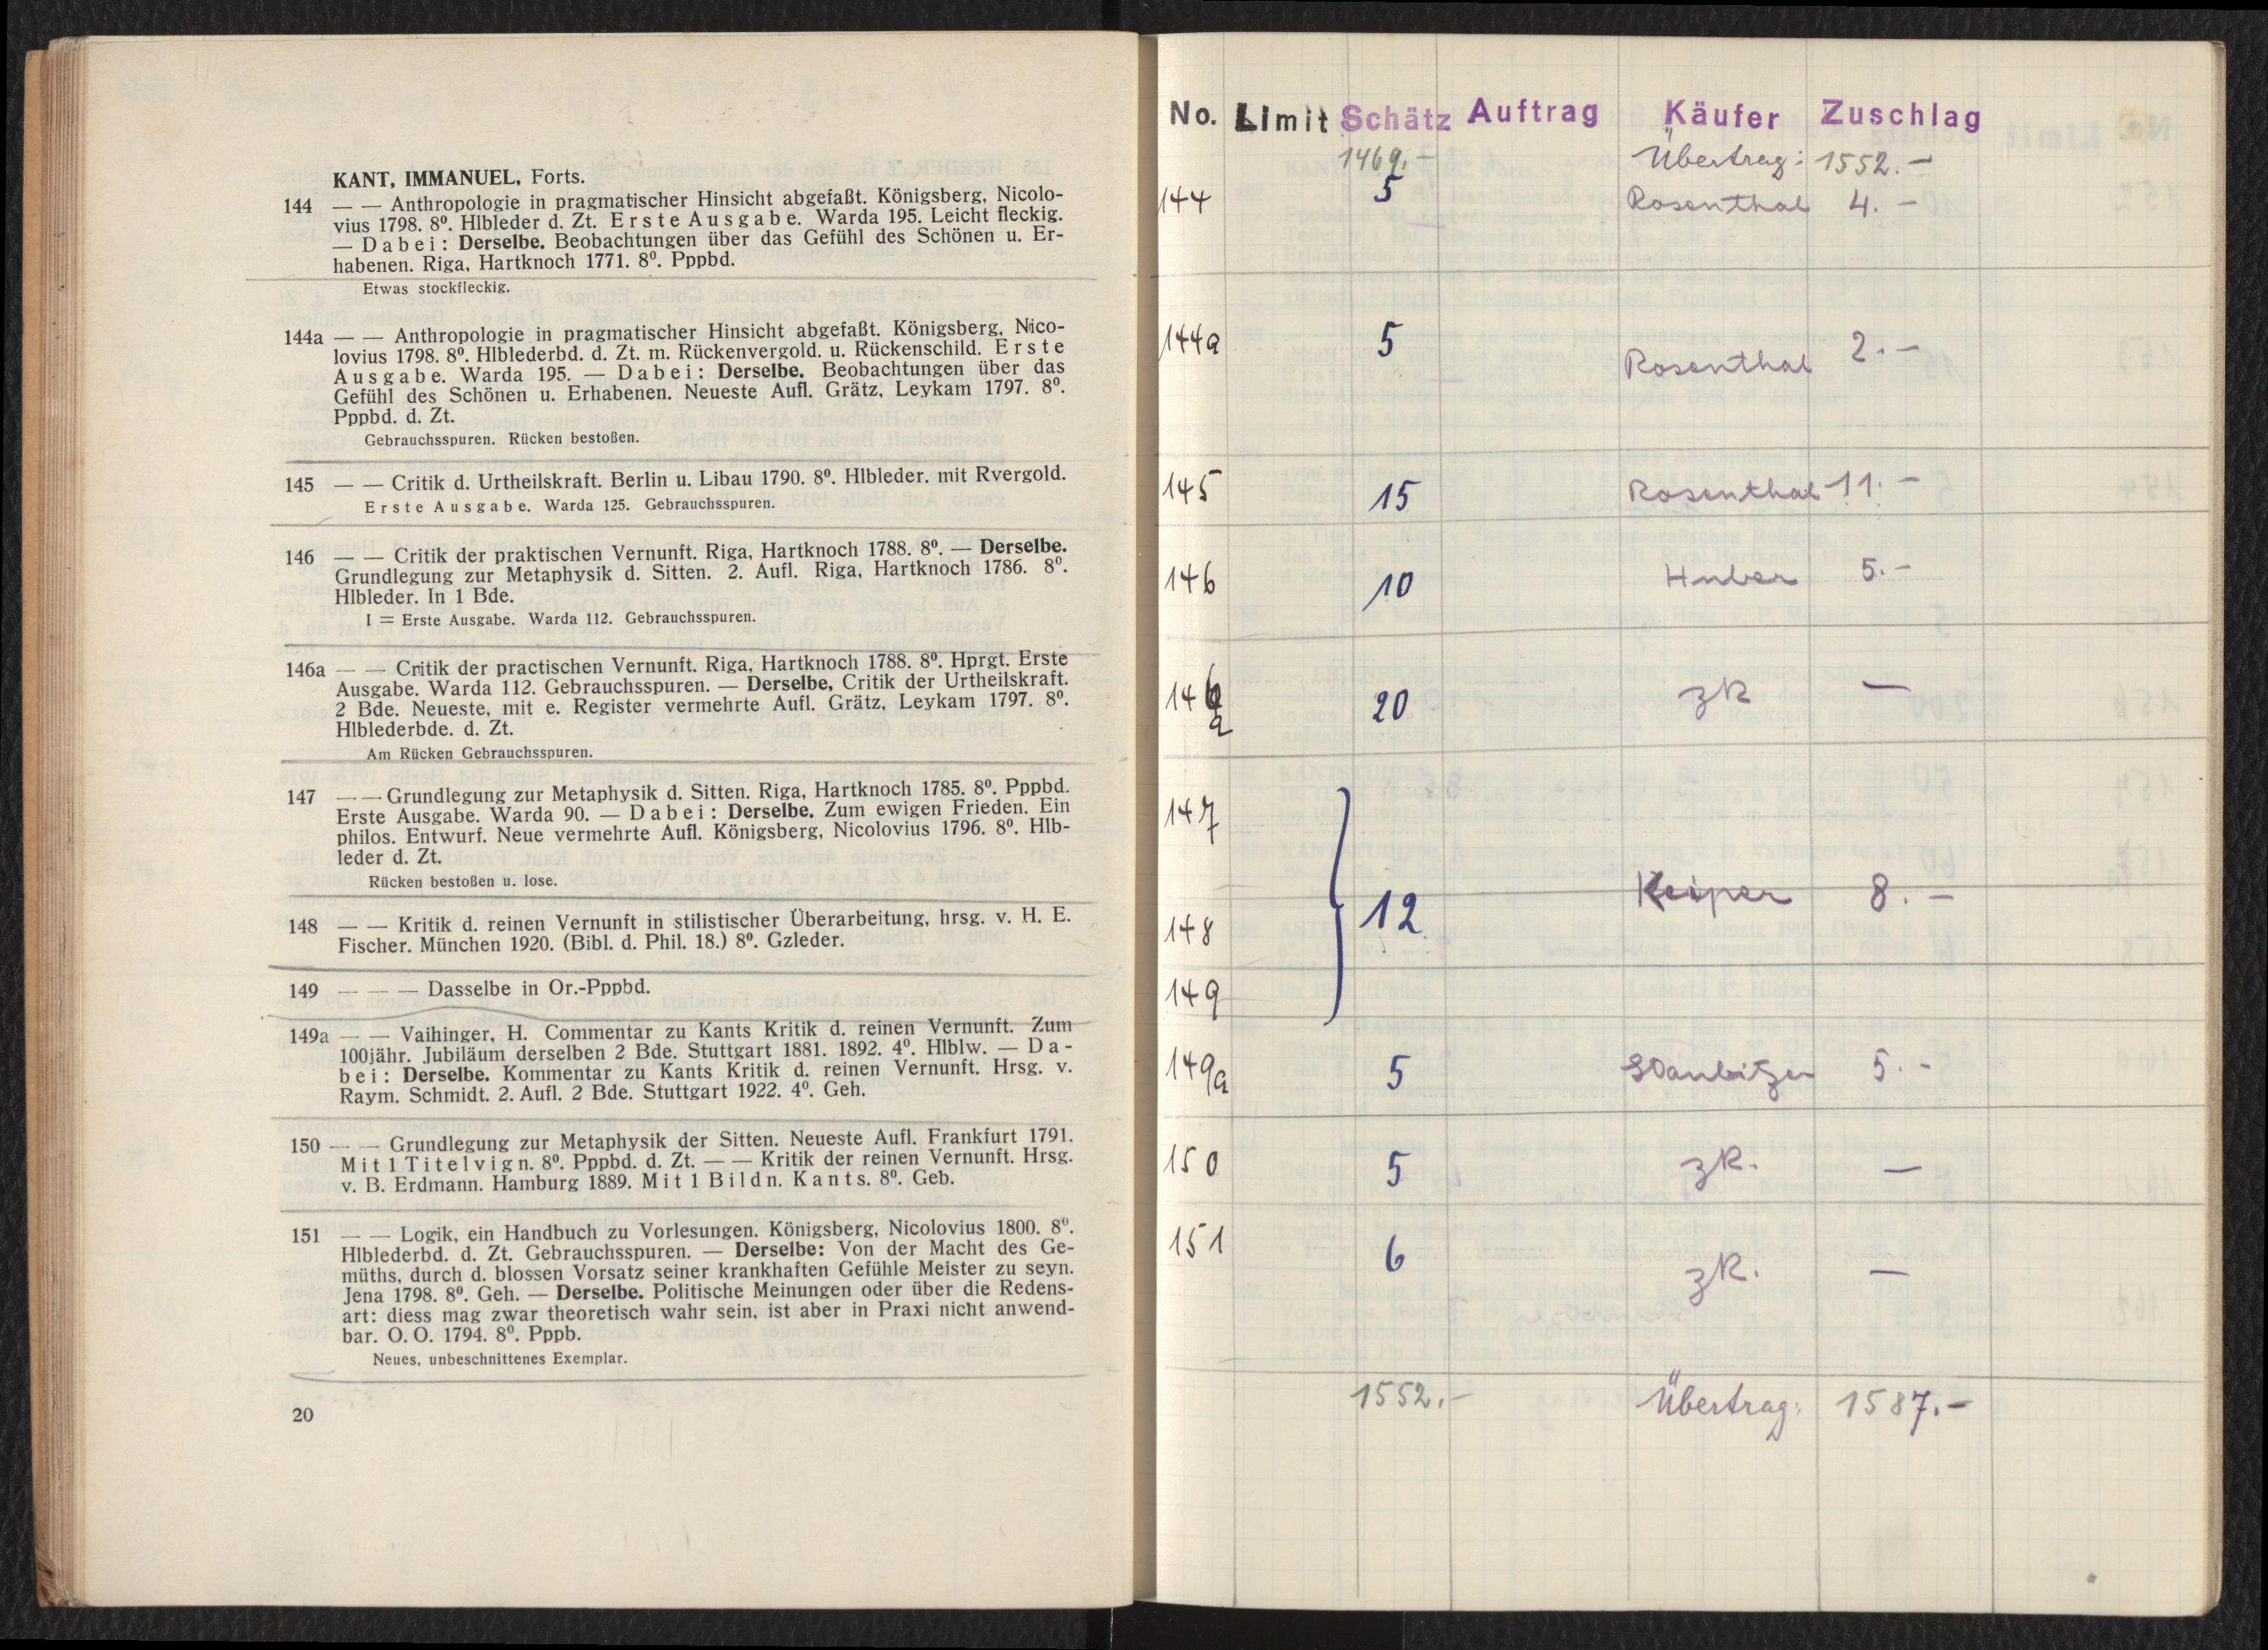 KANT, IMMANUEL, Forts.
144 — — Anthropologie in pragmatischer Hinsicht abgefaßt. Königsberg, Nicolo-
vius 1798. 8⁰. Hlbleder d. Zt. Erste Ausgabe. Warda 195. Leicht fleckig.
— Dabei: Derselbe. Beobachtungen über das Gefühl des Schönen u. Er-
habenen. Riga, Hartknoch 1771. 8⁰. Pppbd.
Etwas stockfleckig.
144a — — Anthropologie in pragmatischer Hinsicht abgefaßt. Königsberg, Nico-
lovius 1798. 8⁰. Hlblederbd. d. Zt. m. Rückenvergold. u. Rückenschild. Erste
Ausgabe. Warda 195. — Dabei: Derselbe. Beobachtungen über das
Gefühl des Schönen u. Erhabenen. Neueste Aufl. Grätz, Leykam 1797. 8⁰.
Pppbd. d. Zt.
Gebrauchsspuren. Rücken bestoßen.
145 — — Critik d. Urtheilskraft. Berlin u. Libau 1790. 8⁰. Hlbleder. mit Rvergold.
Erste Ausgabe. Warda 125. Gebrauchsspuren.
146 — — Critik der praktischen Vernunft. Riga, Hartknoch 1788. 8⁰. — Derselbe.
Grundlegung zur Metaphysik d. Sitten. 2. Aufl. Riga, Hartknoch 1786. 8⁰.
Hlbleder. In 1 Bde.
I = Erste Ausgabe. Warda 112. Gebrauchsspuren.
146a — — Critik der practischen Vernunft. Riga, Hartknoch 1788. 8⁰. Hprgt. Erste
Ausgabe. Warda 112. Gebrauchsspuren. — Derselbe, Critik der Urtheilskraft.
2 Bde. Neueste, mit e. Register vermehrte Aufl. Grätz, Leykam 1797. 8⁰.
Hlblederbde. d. Zt.
Am Rücken Gebrauchsspuren.
147 — — Grundlegung zur Metaphysik d. Sitten. Riga, Hartknoch 1785. 8⁰. Pppbd.
Erste Ausgabe. Warda 90. — Dabei: Derselbe. Zum ewigen Frieden. Ein
philos. Entwurf. Neue vermehrte Aufl. Königsberg, Nicolovius 1796. 8⁰. Hlb-
leder d. Zt.
Rücken bestoßen u. lose.
148 — — Kritik d. reinen Vernunft in stilistischer Überarbeitung, hrsg. v. H. E.
Fischer. München 1920. (Bibl. d. Phil. 18.) 8⁰. Gzleder.
149 — — — Dasselbe in Or.-Pppbd.
149a — — Vaihinger, H. Commentar zu Kants Kritik d. reinen Vernunft. Zum
100jähr. Jubiläum derselben 2 Bde. Stuttgart 1881. 1892. 4⁰. Hlblw. — Da-
bei: Derselbe. Kommentar zu Kants Kritik d. reinen Vernunft. Hrsg. v.
Raym. Schmidt. 2. Aufl. 2 Bde. Stuttgart 1922. 4⁰. Geh.
150 — — Grundlegung zur Metaphysik der Sitten. Neueste Aufl. Frankfurt 1791.
Mit 1 Titelvign. 8⁰. Pppbd. d. Zt. — — Kritik der reinen Vernunft. Hrsg.
v. B. Erdmann. Hamburg 1889. Mit 1 Bildn. Kants. 8⁰. Geb.
151 — — Logik, ein Handbuch zu Vorlesungen. Königsberg, Nicolovius 1800. 8⁰.
Hlblederbd. d. Zt. Gebrauchsspuren. — Derselbe: Von der Macht des Ge-
müths, durch d. blossen Vorsatz seiner krankhaften Gefühle Meister zu seyn.
Jena 1798. 8⁰. Geh. — Derselbe. Politische Meinungen oder über die Redens-
art: diess mag zwar theoretisch wahr sein, ist aber in Praxi nicht anwend-
bar. O. O. 1794. 8⁰. Pppb.
Neues, unbeschnittenes Exemplar.
20
No. Limit Schätz Auftrag Käufer Zuschlag
1469.— Übertrag: 1552.—
144 5 Rosenthal 4.—
144a 5 Rosenthal 2.—
145 15 Rosenthal 11.—
146 10 Huber 5.—
146a 20 zk —
147
148 12 Keiper 8.—
149
149a 5 5.-
150 5 zk. —
151 6 zk. —
1552.— Übertrag: 1587.—